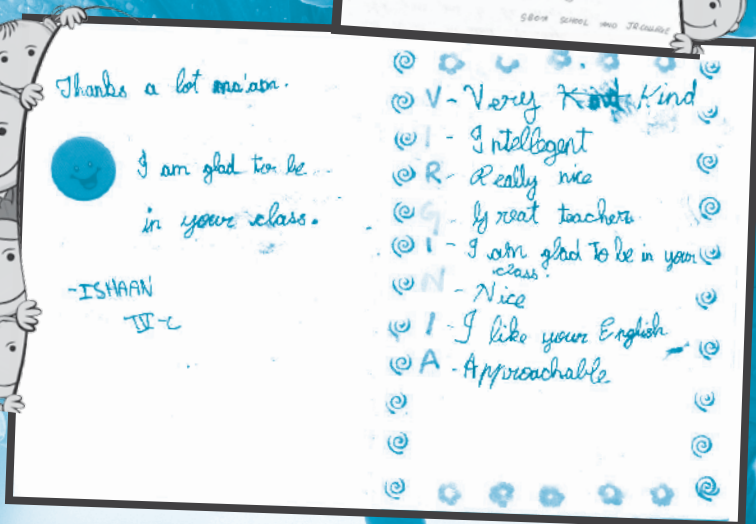 SBOA SCHOOL AND JR COLLEGE
Thanks a lot ma'am.
I am glad to be
in your class.
-ISHAAN
IV-C
V - Very Kind Kind
I - Intellegent
R - Really nice
G - Great teacher
I - I am glad To be in your
class.
N - Nice
I - I like your English
A - Approachable